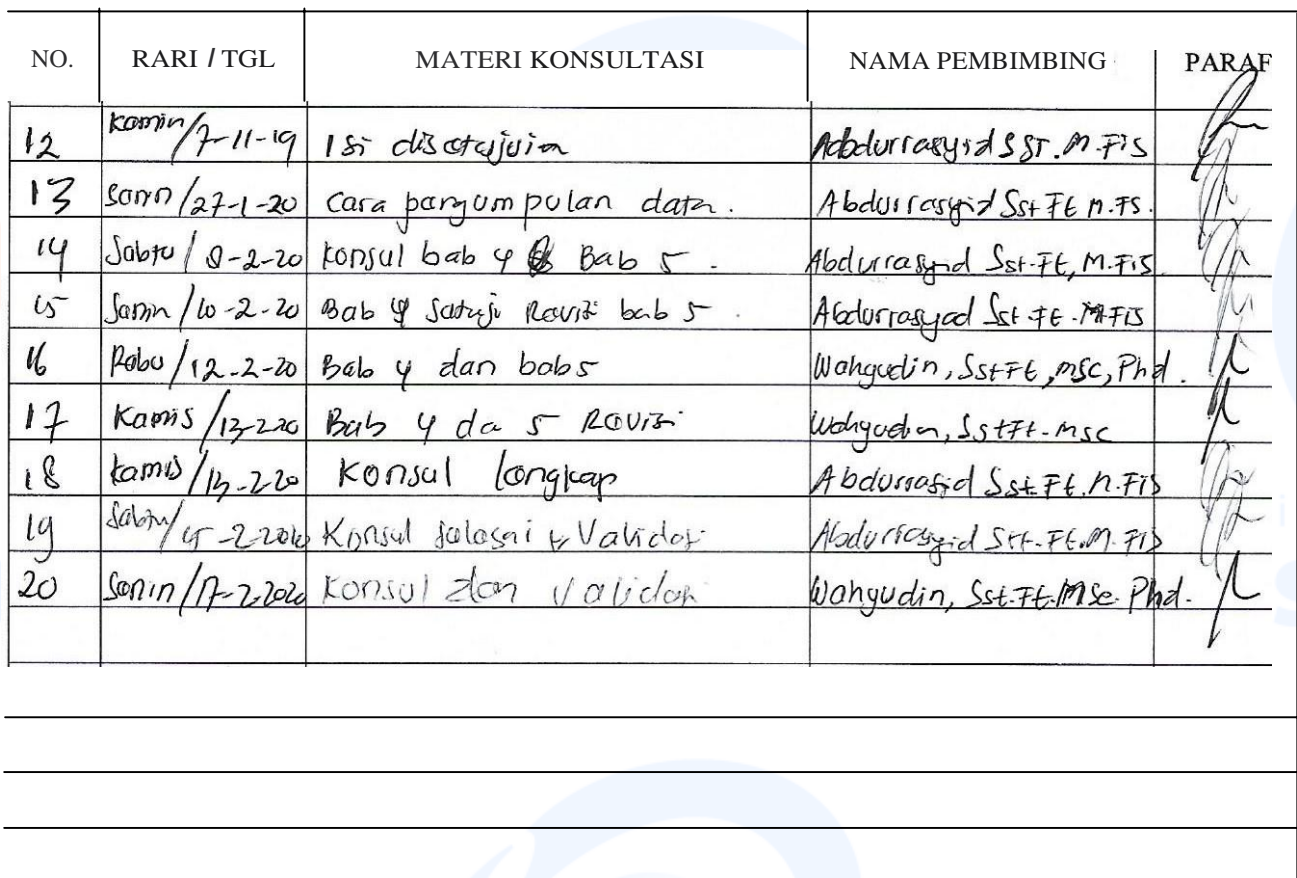 NO. RARI / TGL MATERI KONSULTASI NAMA PEMBIMBING PARAF
12 Kamin/7-11-19 Isi disetujuin Abdurrasyid SST. M.Fis
13 Senin/27-1-20 Cara pengumpulan data. Abdurrasyid Sst Ft M.FS.
14 Sabtu/8-2-20 Konsul bab 4 Bab 5. Abdurrasyid Sst.Ft, M.Fis
15 Senin/10-2-20 Bab 4 Setuju Revisi bab 5. Abdurrasyad Sst.Ft.M.Fis
16 Rabu/12-2-20 Bab 4 dan bab 5 Wahyudin, Sst Ft, MSC, Phd.
17 Kamis/13-2-20 Bab 4 da 5 Revisi Wahyudin, Sst Ft. Msc
18 Kamis/13-2-20 Konsul lengkap Abdurrasid Sst.Ft.M.Fis
19 Sabtu/15-2-2020 Konsul selesai Validasi Abdurrasyid Sst.Ft.M.Fis
20 Senin/17-2-2020 Konsul dan Validasi Wahyudin, Sst.Ft.MSc.Phd.